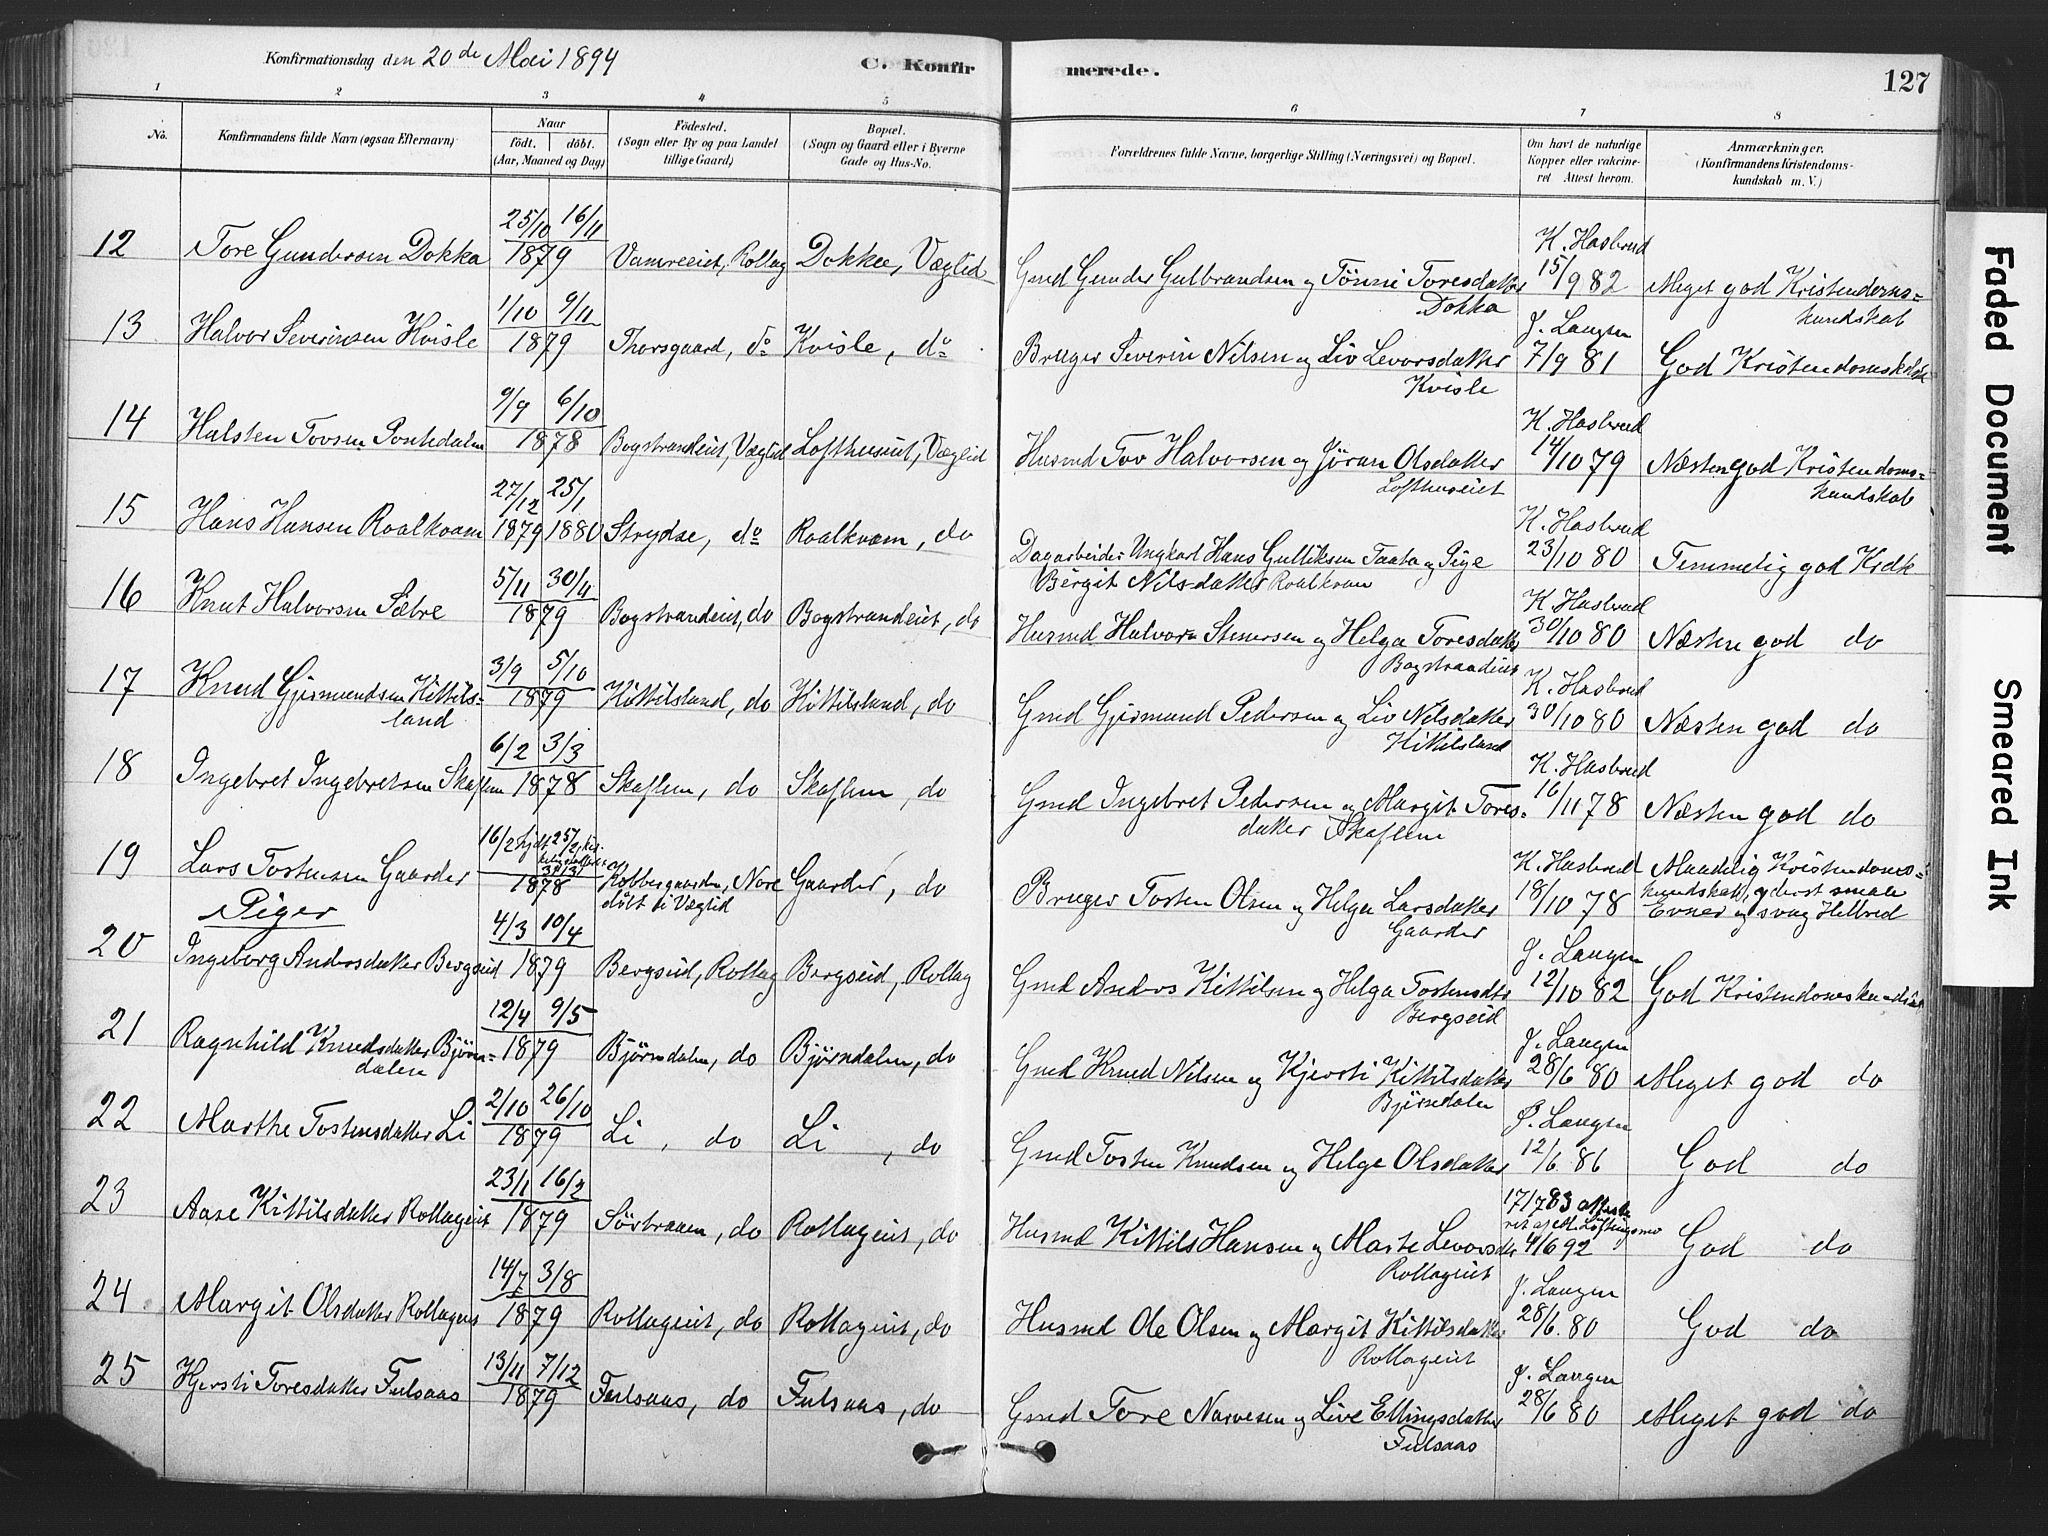 Konfirmationsdag den 20de Mai 1894
C. Konfir
merede.
127
1 2 3 4 5 6 7 8
No.
Konfirmandens fulde Navn (ogsaa Efternavn)
Naar
födt. döbt.
(Aar, Maaned og Dag)
Födested.
(Sogn eller By og paa Landet
tillige Gaard)
Bopæl.
(Sogn og Gaard eller i Byerne
Gade og Hus-No.
Forældrenes fulde Navne, borgerlige Stilling (Næringsvei) og Bopæl.
Om havt de naturlige
Kopper eller vakcine-
ret Attest herom.
Anmærkninger.
(Konfirmandens Kristendoms-
kundskab m. V.)
25/10 16/11
K. Hasbrud
12 Tore Gundersen Dokka 1879 Rollag Dokka, Væglid
Gmd Gunder Gulbrandsen og Tönni Toresdatter 15/9 82 Meget god Kristendoms-
Dokka kundskab
1/10 9/11
J. Langen
13 Halvor Severinsen Kvisle 1879 Thorsgaard, do Kvisle, do
Bruger Severin Nilsen og Liv Levorsdatter 7/9 81 God
Kvisle
9/9 6/10
K. Hasbrud
14 Halsten Tovsen 1878 Bogstrandeiet, Væglid Lofthuseiet, Væglid
Husmd Tov Halvorsen og Jöran Olsdatter 14/10 79 Næsten god Kristendoms-
Lofthuseiet kundskab
27/12 25/1
K. Hasbrud
15 Hans Hansen Roalkvam 1879 1880 Strydse, do Roalkvam, do
Dagarbeider Ungkarl Hans Gulliksen Taata og Pige 23/10 80 Temmelig god Krdk
Bergit Nilsdatter Roalkvam
5/11 30/11
K. Hasbrud
16 Knut Halvorsen Sætre 1879 Bogstrandeiet, do Bogstrandeiet, do
Husmd Halvor Stenersen og Helga Toresdatter 30/10 80 Næsten god do
Bogstrandeiet
3/9 5/10
K. Hasbrud
17 Knud Gjermundsen Kittils-
land 1879 Kittilsland, do Kittilsland, do
Gmd Gjermund Pedersen og Liv Nilsdatter 30/10 80 Næsten god do
Kittilsland
6/2 3/3
K. Hasbrud
18 Ingebret Ingebretsen Skaflem 1878 Skaflem, do Skaflem, do
Gmd Ingebret Pedersen og Margit Tores- 16/11 78 Næsten god do
datter Skaflem
16/2 hjdt 25/2
K. Hasbrud Maadelig Kristendoms-
19 Lars Tostensen Gaarder 1878 Kobbergaarden, Nore Gaarder, do
döbt i Væglid
Bruger Tosten Olsen og Helga Larsdatter 18/10 78 kundskab, yderst smaa
Gaarder Evner og svag Helbred
Piger
4/3 10/4
J. Langen
20 Ingeborg Andersdatter Bergseid 1879 Bergseid, Rollag Bergseid, Rollag
Gmd Anders Kittilsen og Helga Tostensdtr 12/10 82 God
Bergseid
12/4 9/5
J. Langen
21 Ragnhild Knudsdatter Björn-
dalen 1879 Björndalen, do Björndalen, do
Gmd Knud Nilsen og Kjersti Kittilsdatter 28/6 80 Meget god do
Björndalen
2/10 26/10
J. Langen
22 Marthe Tostensdatter Li 1879 Li, do Li, do
Gmd Tosten Knudsen og Helge Olsdatter 12/6 86 God do
23/1 16/2
17/7 83 atteste
ret af
23 Aase Kittilsdatter Rollageiet 1879 Sörbraaen, do Rollageiet, do
Husmd Kittils Hansen og Marte Levorsdtr 4/6 92 God do
Rollageiet
14/7 3/8
J. Langen
24 Margit Olsdatter Rollageiet 1879 Rollageiet, do Rollageiet, do
Husmd Ole Olsen og Margit Kittilsdatter 28/6 80 God do
Rollageiet
13/11 7/12
J. Langen
25 Kjersti Toresdatter Fulsaas 1879 Fulsaas, do Fulsaas, do
Gmd Tore Narvesen og Live Ellingsdatter 28/6 80 Meget god do
Fulsaas
Faded Document
Smeared Ink